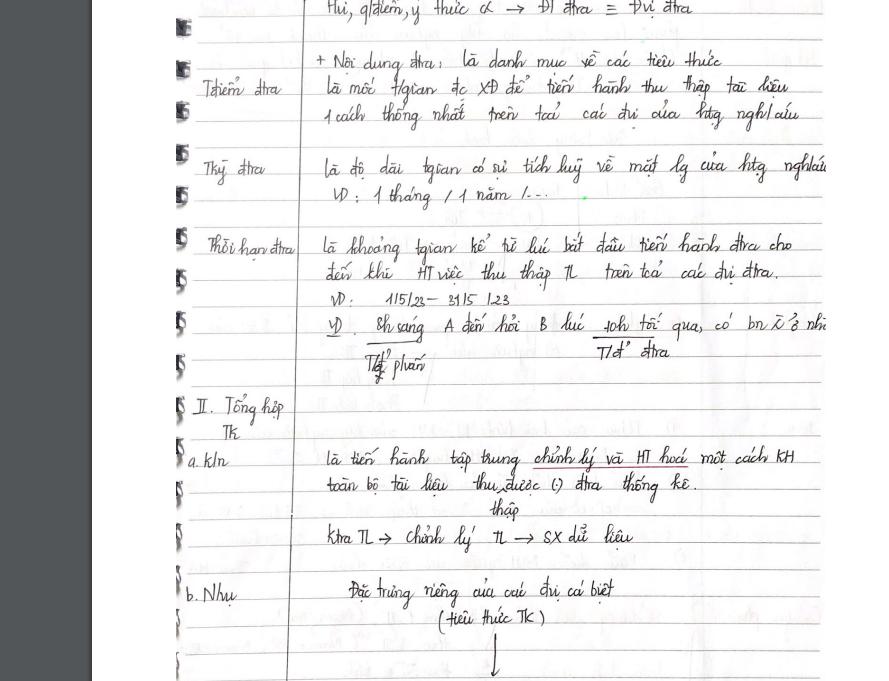 Hvi, q/điểm, ý thức → ĐT đtra ≡ Đvị đtra
+ Nội dung đtra: là danh mục về các tiêu thức
Tđiểm đtra là mốc t/gian đc XĐ để tiến hành thu thập tài liệu
1 cách thống nhất trên toà các đvị của htg ngh/cứu
Tkỳ đtra là độ dài tgian có sự tích luỹ về mặt lg của htg ngh/cứu
VD: 1 tháng / 1 năm /...
Thời hạn đtra là khoảng tgian kể từ lúc bắt đầu tiến hành đtra cho
đến khi HT việc thu thập TL trên toà các đvị đtra.
VD: 1/5/23 - 31/5/23
VD. 8h sáng A đến hỏi B lúc 10h tối qua, có bn ở
T/đ' đtra
II. Tổng hợp
TK
a. kln là tiến hành tập trung chỉnh lý và HT hoá một cách KH
toàn bộ tài liệu thu được (.) đtra thống kê.
thập
Ktra TL → chỉnh lý TL → SX dữ liệu
b. Nhvụ Đặc trưng riêng của các đvị cá biệt
(tiêu thức TK)